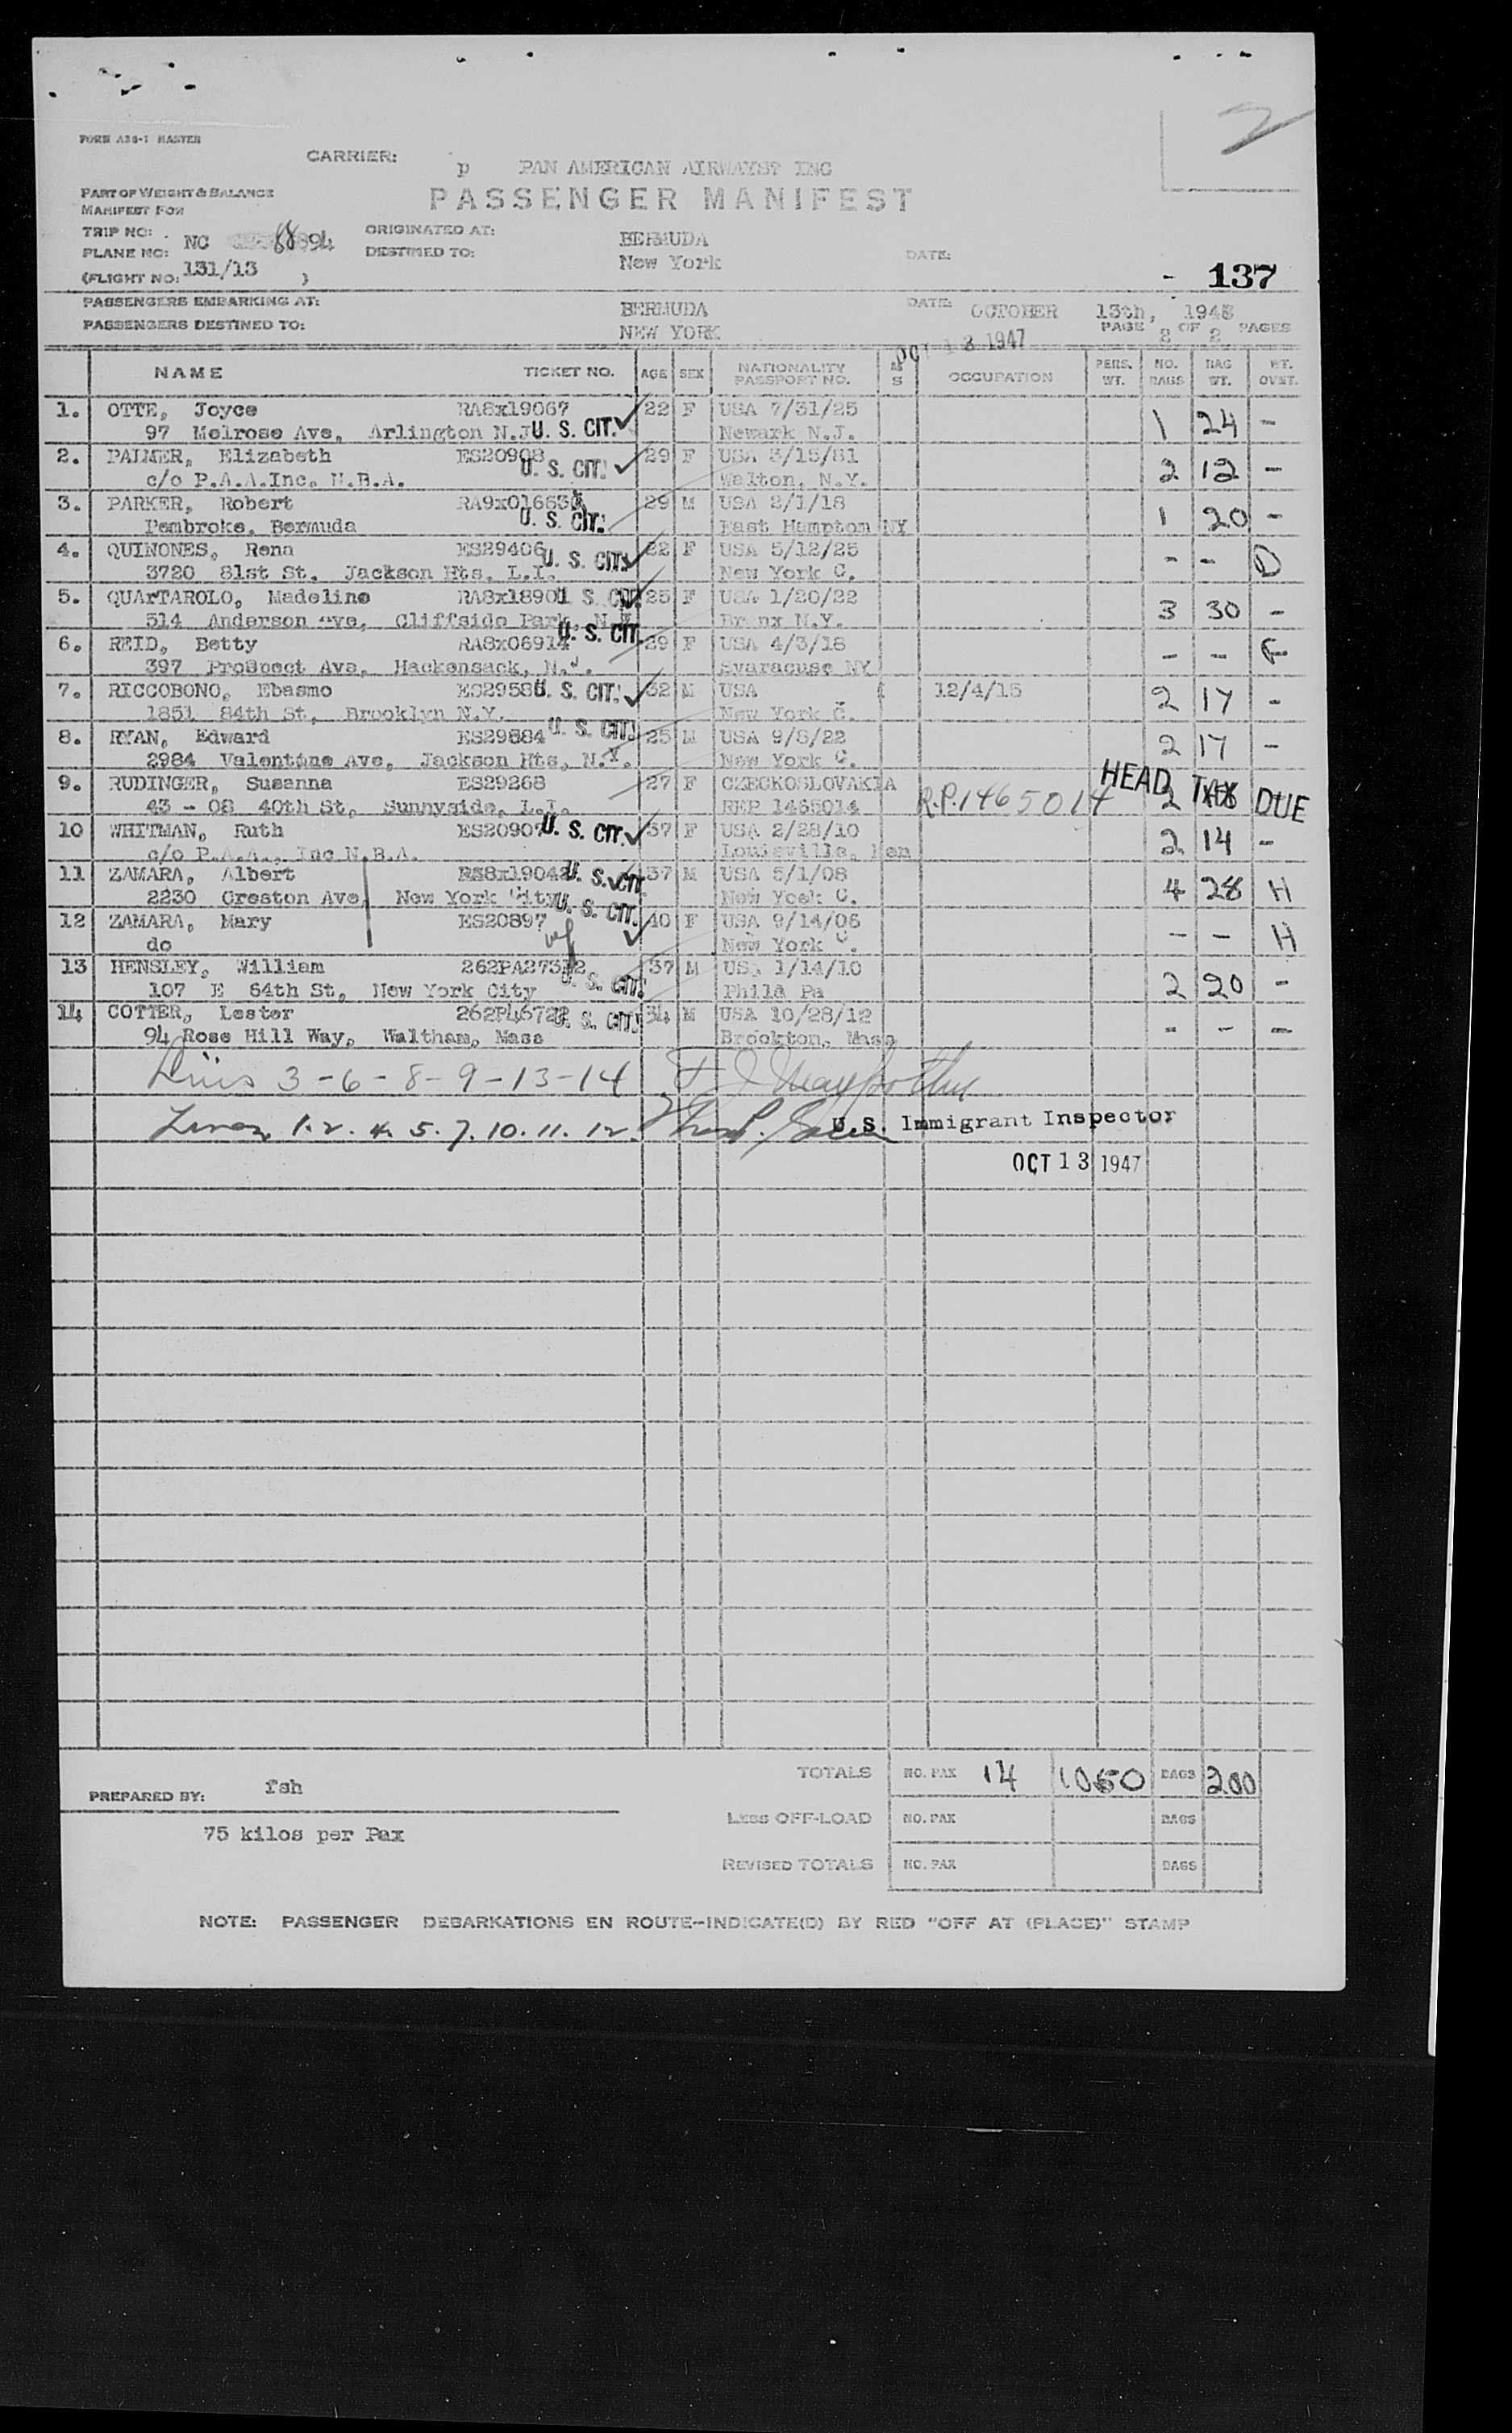 2
FORM A36-1 MASTER
CARRIER: p PAN AMERICAN AIRWAYS? INC
PASSENGER MANIFEST
PART OF WEIGHT & BALANCE
MANIFEST FOR
TRIP NO:
PLANE NO: NC 88894
(FLIGHT NO: 131/13 )
ORIGINATED AT: BERMUDA
DESTINED TO: New York
DATE:
- 137
PASSENGERS EMBARKING AT: BERMUDA
PASSENGERS DESTINED TO: NEW YORK
DATE: OCTOBER 13th, 1948
OCT 13 1947
PAGE 2 OF 2 PAGES
NAME TICKET NO. AGE SEX NATIONALITY PASSPORT NO. M S OCCUPATION PERS. WT. NO. BAGS BAG WT. WT. OVNT.
1. OTTE, Joyce RA8x19067 22 F USA 7/31/25 1 24 -
97 Melrose Ave, Arlington N.J U. S. CIT. Newark N.J.
2. PALMER, Elizabeth ES20908 29 F USA 3/15/81 2 12 -
c/o P.A.A.Inc. N.B.A. U. S. CIT. Walton, N.Y.
3. PARKER, Robert 29 M USA 2/1/18 1 20 -
Pembroke, Bermuda U. S. CIT. East Hampton NY
4. QUINONES, Rena ES29406 U. S. CIT. 22 F USA 5/12/25 - - D
3720 81st St. Jackson Hts, L.I. New York C.
5. QUArTAROLO, Madeline RA8x18901 U. S. CIT. 25 F USA 1/20/22 3 30 -
314 Anderson Ave, Cliffside Park, N. Bronx N.Y.
6. REID, Betty RA8x06914 U. S. CIT. 29 F USA 4/3/18 - -
397 ProSpect Ave, Hackensack, N.J. Syaracuse NY
7. RICCOBONO, Ebasmo U. S. CIT. 32 M USA 12/4/15 2 17 -
1851 84th St, Brooklyn N.Y. New York C.
8. RYAN, Edward ES29884 U. S. CIT. 25 M USA 9/8/22 2 17 -
2984 Valentine Ave, Jackson Hts, N.Y. New York C.
9. RUDINGER, Susanna ES29268 27 F CZECKOSLOVAKIA HEAD TAX DUE
43 - 08 40th St, Sunnyside, L.I. REP 1465014 R.P.1465014 2
10 WHITMAN, Ruth ES20907 U. S. CIT. 37 F USA 2/28/10 2 14 -
c/o P.A.A., Inc N.B.A. Louisville, Ken
11 ZAMARA, Albert U. S. CIT. 37 M USA 5/1/08 4 28 H
2230 Creston Ave, New York City New York C.
12 ZAMARA, Mary ES20897 U. S. CIT. 40 F USA 9/14/06 - - H
do New York C.
13 HENSLEY, William 37 M USA 1/14/10 2 20 -
107 E 64th St, New York City U. S. CIT. Phila Pa
14 COTTER, Lester U. S. CIT. 34 M USA 10/28/12 - - -
94 Rose Hill Way, Waltham, Mass Brockton, Mass
3-6-8-9-13-14
Lines 1. 2. 4. 5. 7. 10. 11. 12.
U.S. Immigrant Inspector
OCT 13 1947
TOTALS NO. PAX 14 1050 BAGS 200
PREPARED BY: fsh
LESS OFF-LOAD NO. PAX BAGS
75 kilos per Pax
REVISED TOTALS NO. PAX BAGS
NOTE: PASSENGER DEBARKATIONS EN ROUTE-INDICATE(D) BY RED "OFF AT (PLACE)" STAMP